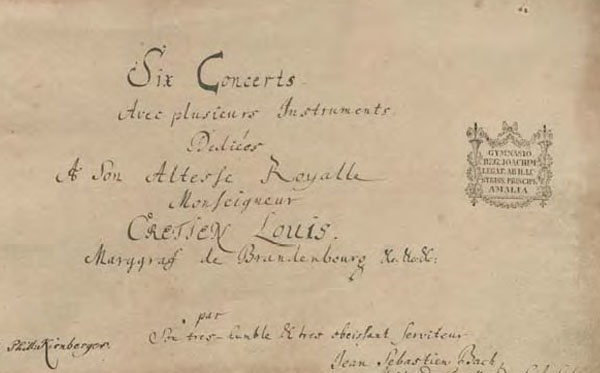 Six Concerts
Avec plusieurs Instruments.
Dediées
A Son Altesse Royalle
Monseigneur
CRETIEN LOUIS.
Marggraf de Brandenbourg &c.&c.&c:
par
Son tres-humble & tres obeissant Serviteur
Jean Sebastien Bach,
GYMNASIO
REG. IOACHIM
LEGAT. AB ILLU
STRISS. PRINCIPE
AMALIA
Kirnberger